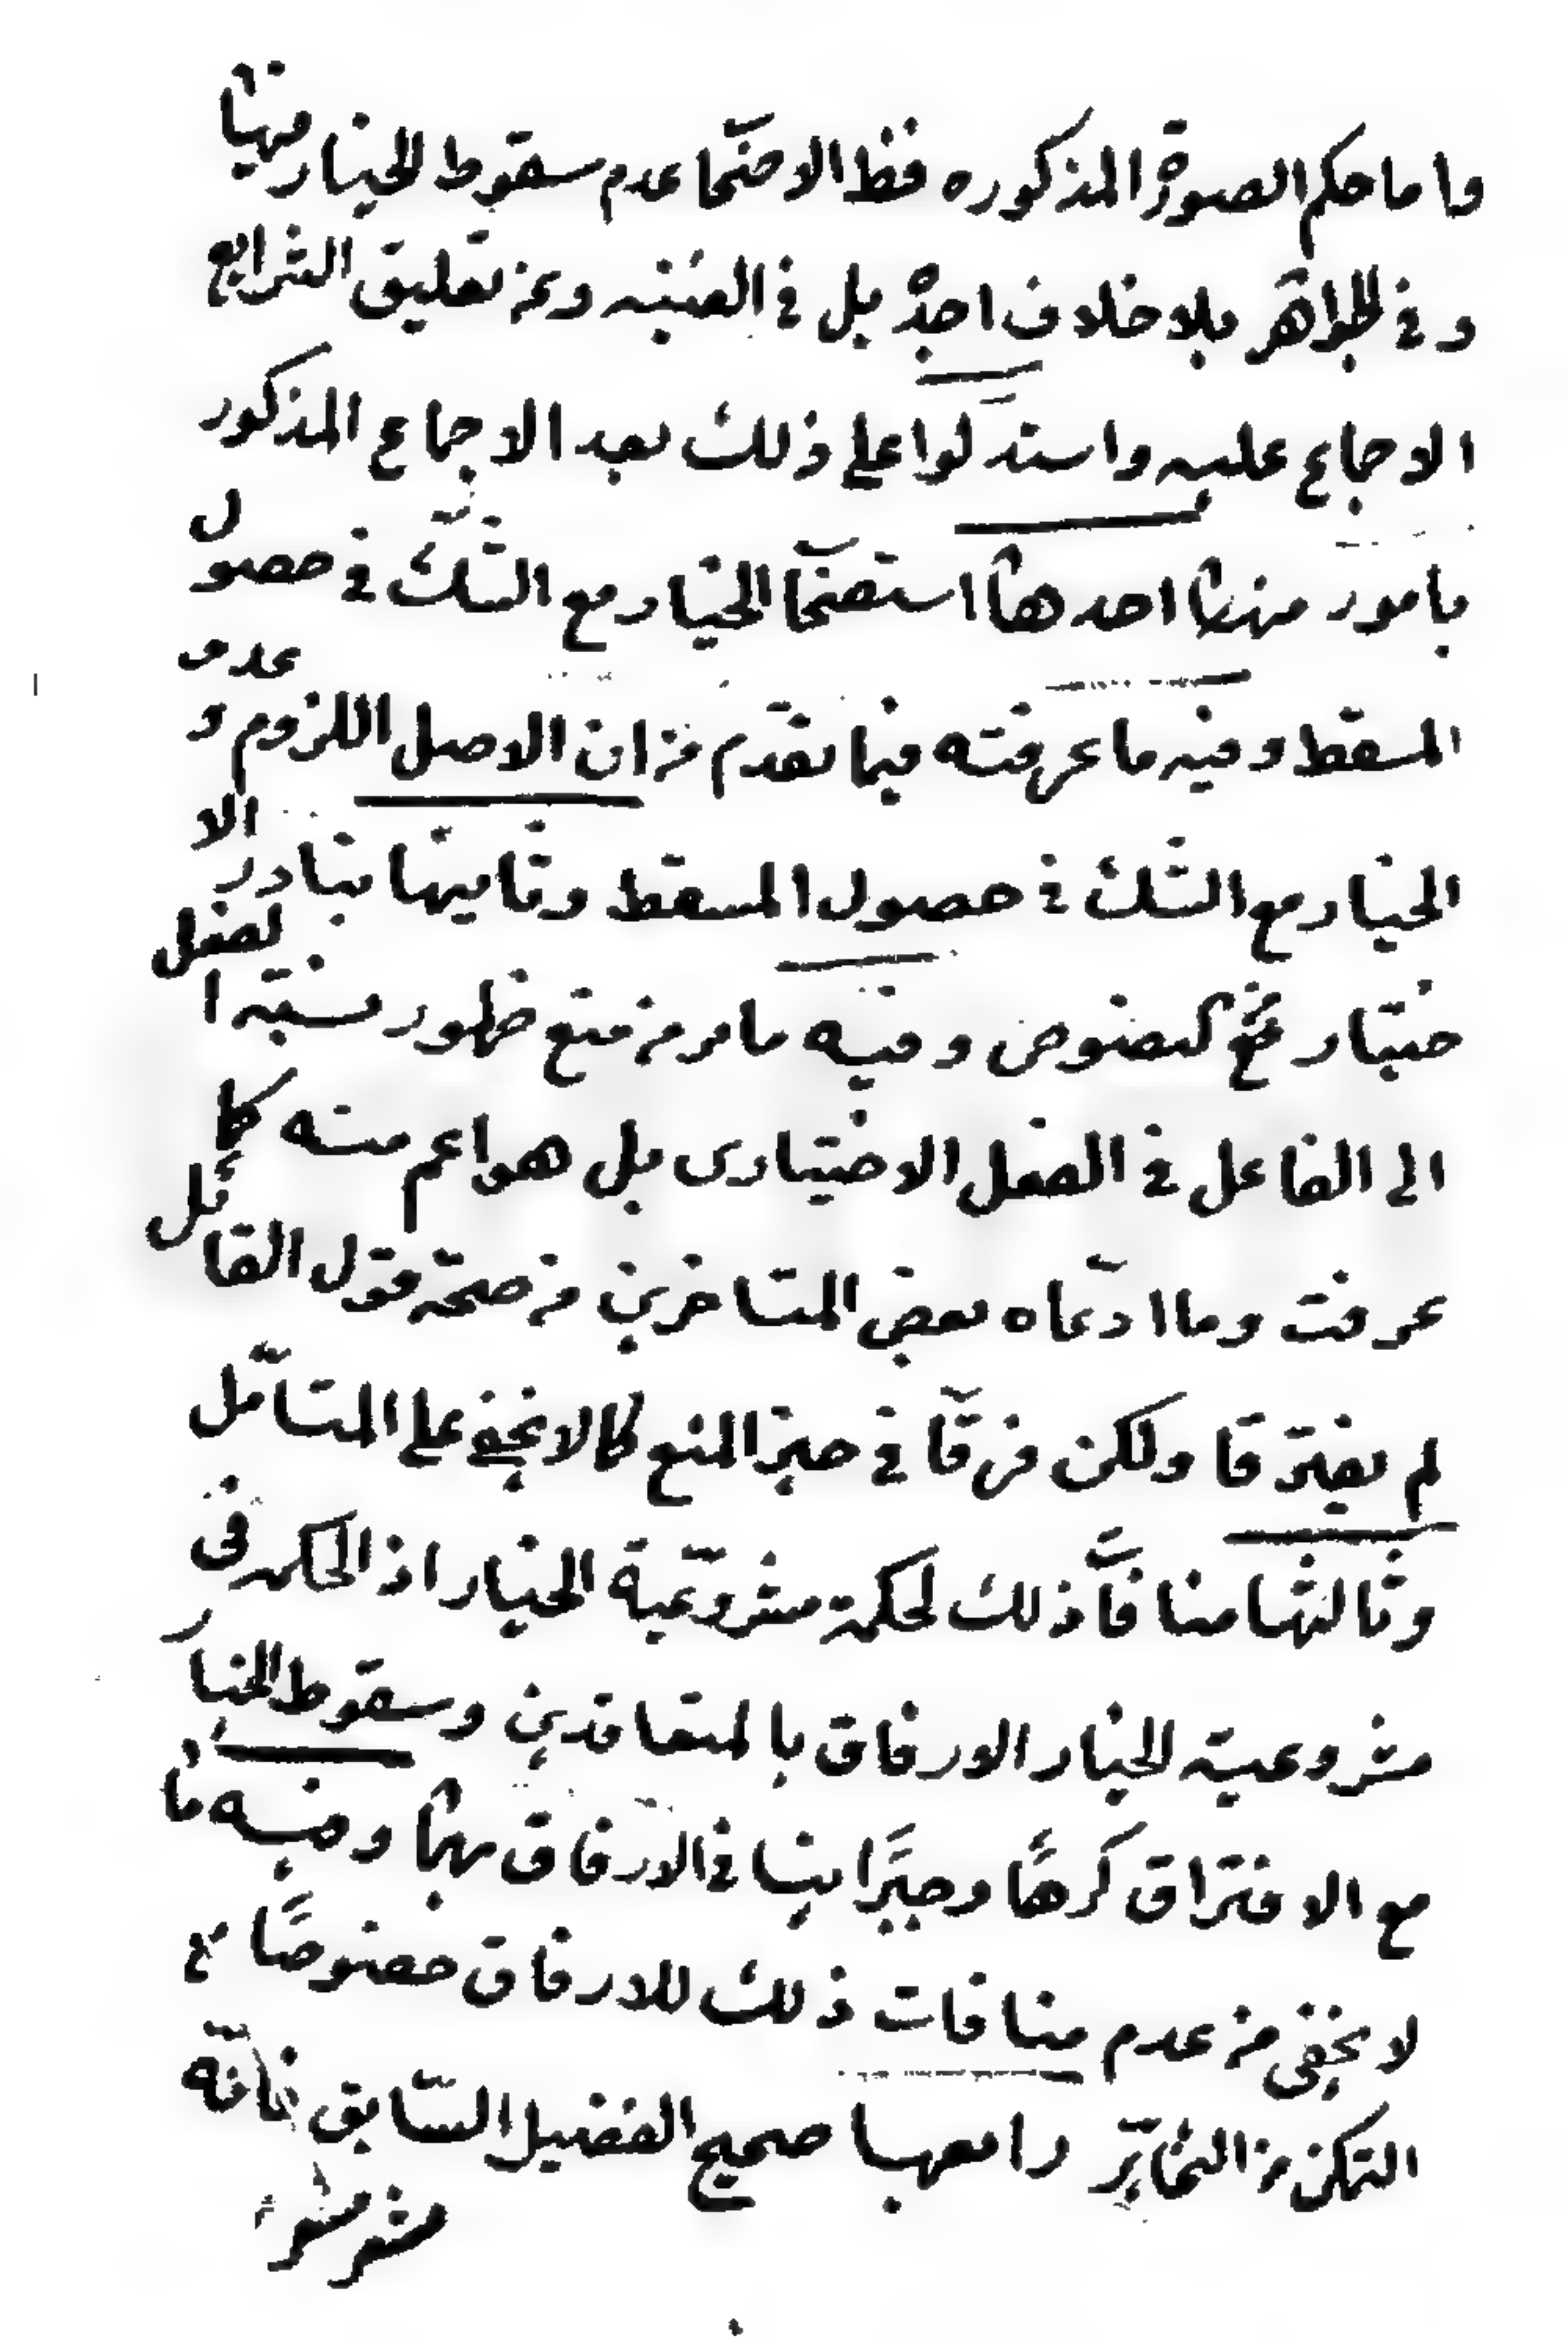 واما حكم الصورة المذكوره فظ الاصحا عدم سقوط الخيار فيها
و في الجواهر بلا خلاف اجده بل في الغنيه وعن تعليق الشرايع
الاجماع عليه واستدلوا على ذلك بعد الاجماع المذكور
بامور منها احدها استصحا الخيار مع الشك في حصول
المسقط وفيه ما عرفته فيما تقدم من ان الاصل اللزوم و عدم
الخيار مع الشك في حصول المسقط وثانيها تبادر الا
ختيار من النصوص وفيه ما مر من منع ظهور نسبة الفعل
الى الفاعل في الفعل الاختيارى بل هو اعم منه كما
عرفت وما ادعاه بعض المتاخرين من صحة قول القائل
لم يفترقا ولكن فرقا في حيز المنع كما لا يخفى على المتامل
وثالثها منافاة ذلك لحكمة مشروعية الخيار اذ الحكمه فى
مشروعية الخيار الارفاق بالمتعاقدين وسقوط الخيار
مع الافتراق كرها وجبرا ينافي الارفاق بهما وفيه ما
لا يخفى من عدم منافات ذلك للارفاق خصوصا مع
التمكن من التخاير رابعها صحيح الفضيل السابق فانه